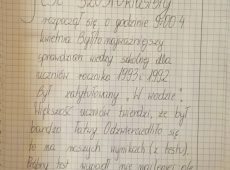 rozpoczął się o godzinie 9:00 4
kwietnia. Był to najważniejszy
sprawdzian wiedzy szkolnej dla
uczniów rocznika 1993 i 1992
był zatytułowany „W wodzie".
Większość uczniów twierdzi, że był
bardzo łatwy. Odzwierciedliło się
to na naszych wynikach (z testu).
Próbny test wypadł nie najlepiej ale